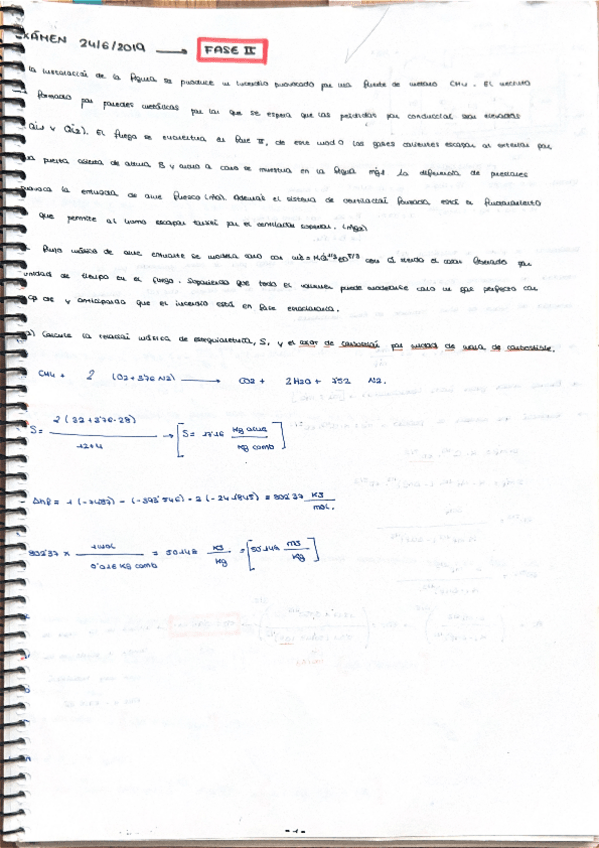 EXÁMEN 24/6/2019 → FASE II
la instalación de la figura se produce un incendio provocado por una fuente de metano CH4. El recinto
formado por paredes metálicas por las que se espera que las pérdidas por conducción sean elevadas
y El fuego se encuentra en fase II, de este modo los gases calientes escapan al exterior por
puerta abierta de altura B y como se muestra en la figura la diferencia de presiones
provoca la entrada de aire fresco Además el sistema de ventilación forzada está en funcionamiento
que permite al humo escapar también por el ventilador superior.
flujo másico de aire entrante se modela como con siendo el calor liberado por
unidad de tiempo en el fuego. Suponiendo que todo el volumen puede modelarse como un gas perfecto con
cp cte y anticipando que el incendio está en fase estacionaria.
a) Calcule la relación másica de estequiometría, S, y el calor de combustión por unidad de masa de combustible.
CH4 + 2 (O2 + 3'76 N2) → CO2 + 2H2O + 7'52 N2.
S = 2 (32 + 3'76·28) / 12+4 → [S = 17'16 kg aire / kg comb]
= 802'37 KJ / mol.
802'37 × 1 mol / 0'016 kg comb = 50148 KJ / Kg = [50'148 MJ / Kg]
-1-